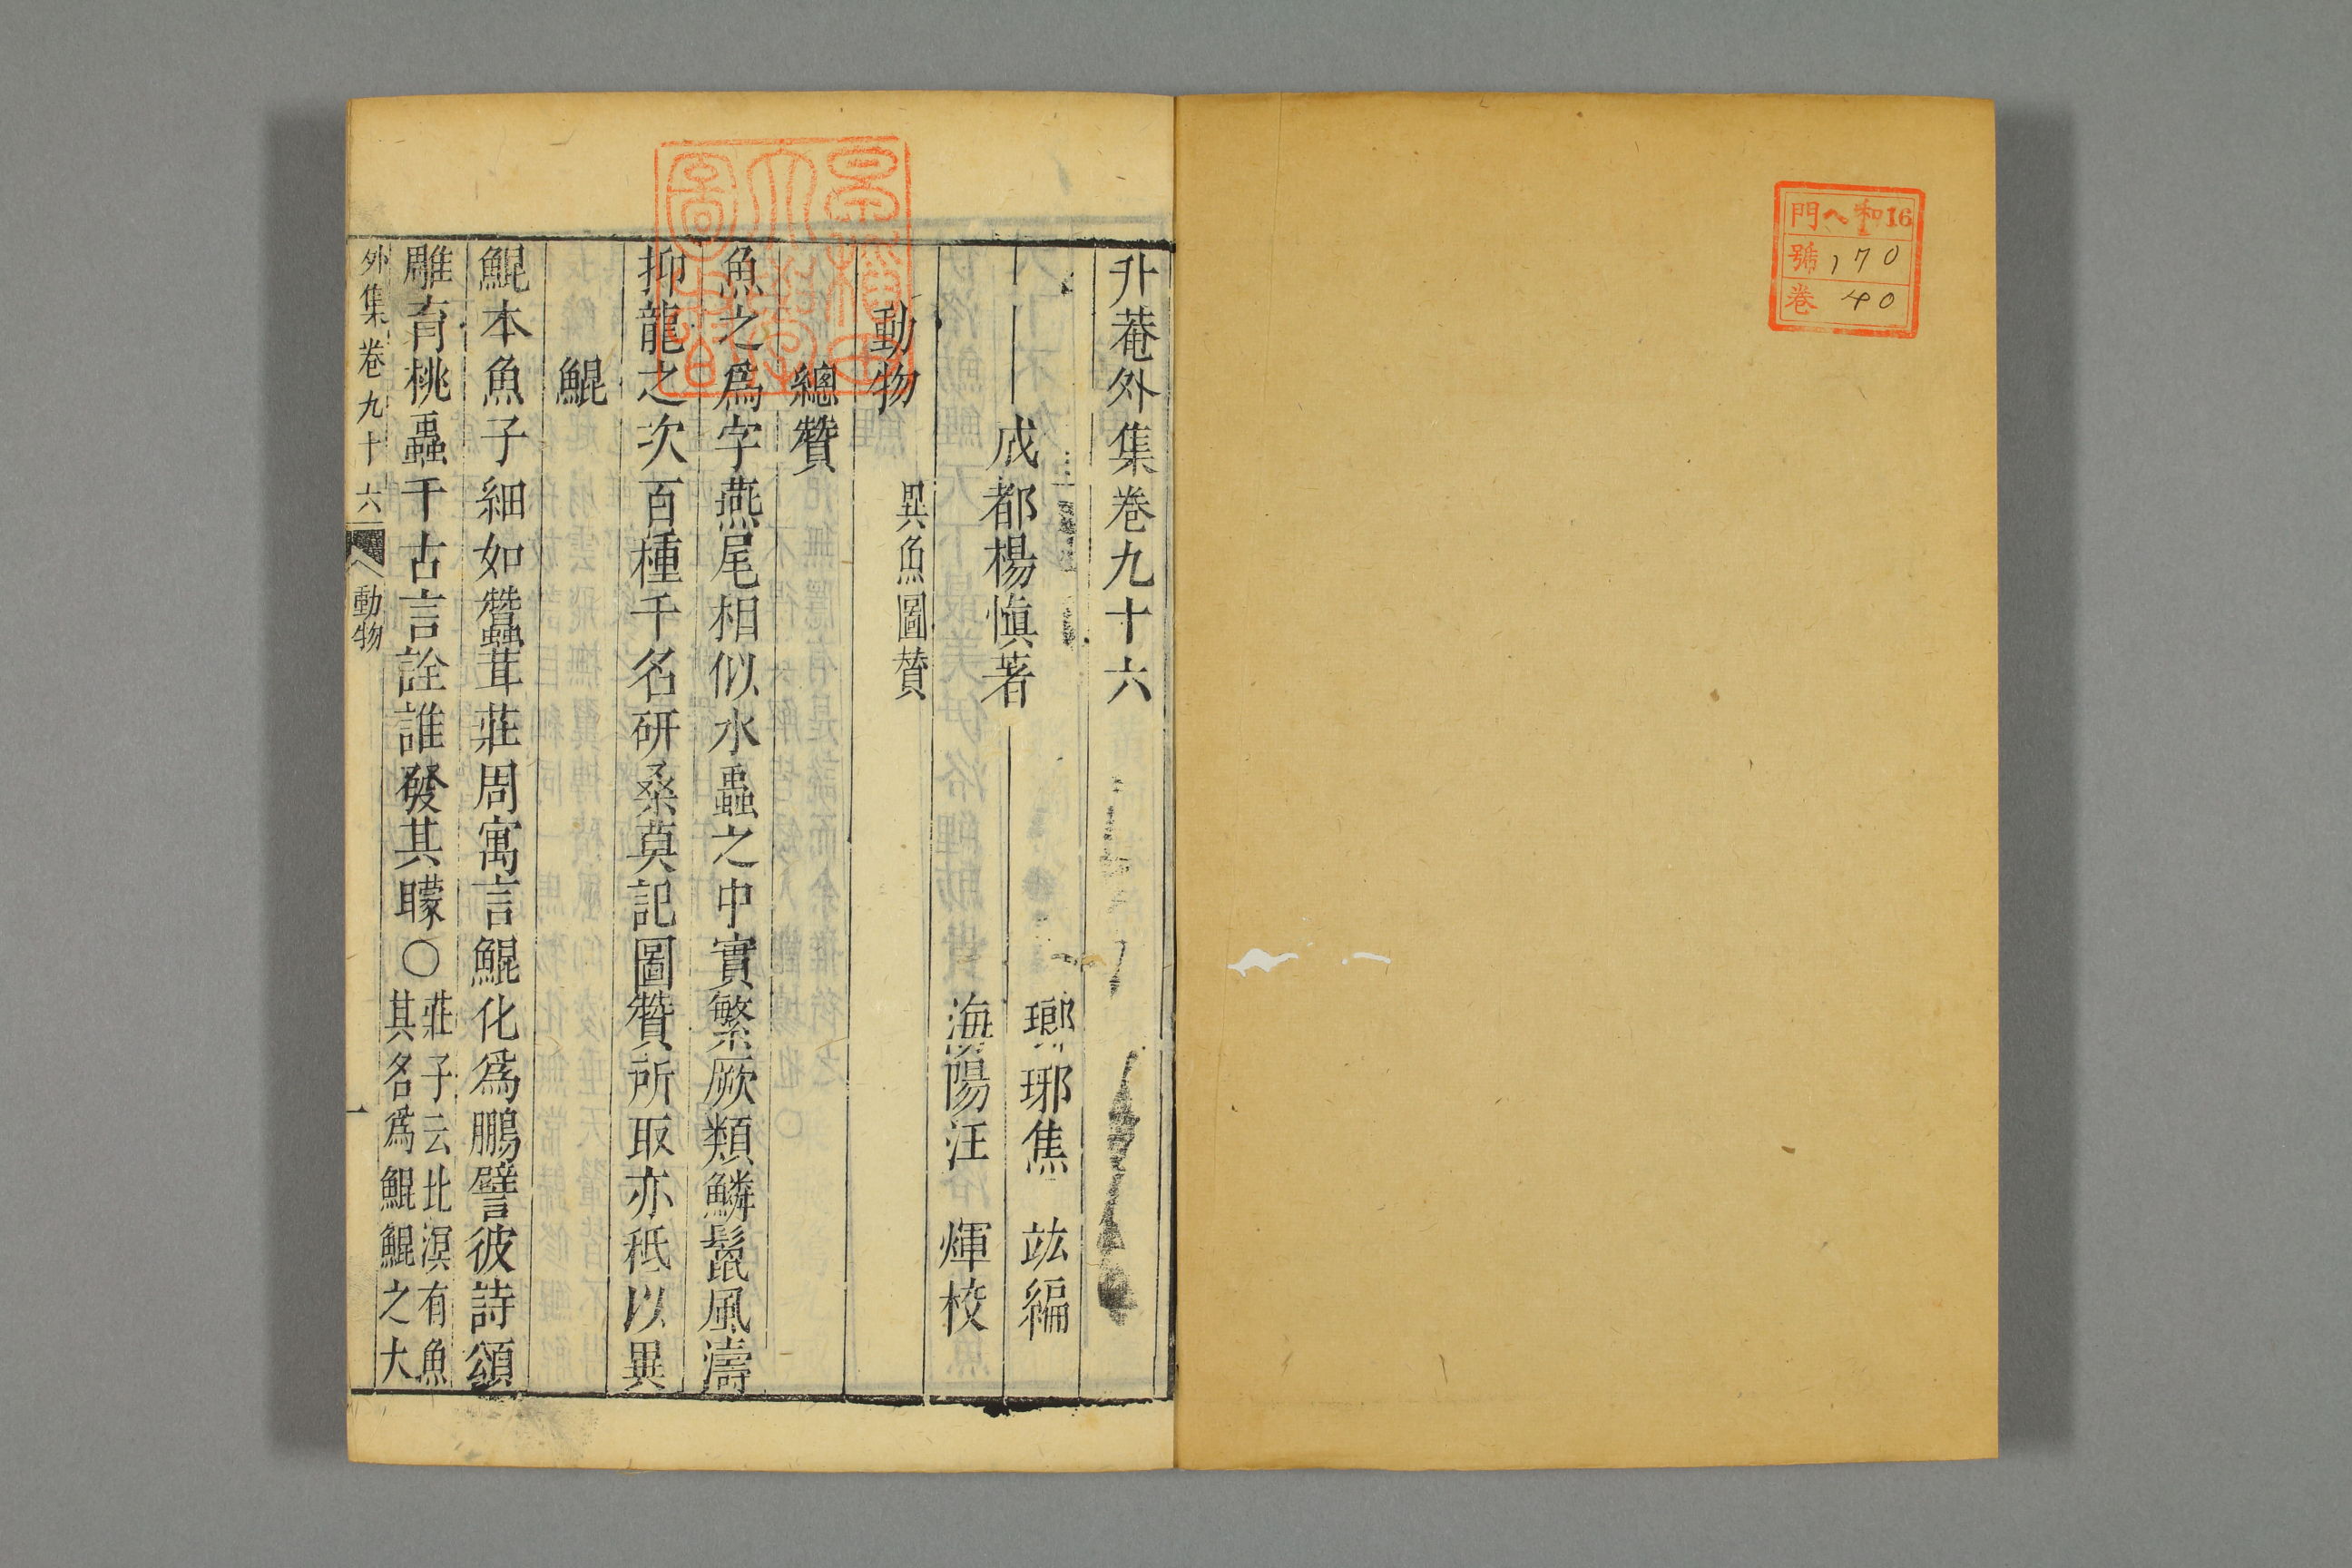 門 ヘ和16
號 170
卷 40
升菴外集卷九十六
成都楊慎著
瑯琊焦 竑編
海陽汪 煇校
動物
異魚圖贊
總贊
魚之爲字燕尾相似水蟲之中實繁厥類鱗鬣風濤
抑龍之次百種千名研桑莫記圖贊所取亦秪以異
鯤
鯤本魚子細如蠶茸莊周寓言鯤化爲鵬譬彼詩頌
雕育桃蟲千古言詮誰發其矇○莊子云北溟有魚
其名爲鯤鯤之大
外集卷九十六
動物
一